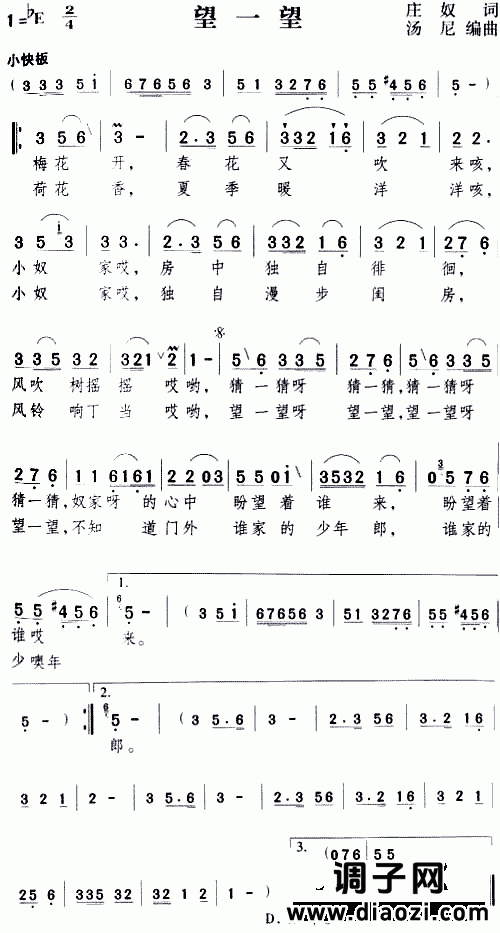 1=♭E 2/4 望一望 庄奴 词
汤尼 编曲
小快板
( 3 3 3 5 i | 6 7 6 5 6 3 | 5 1 3 2 7 6 | 5 5 #4 5 6 | 5 - )
3 5 6 | 3 - | 2 · 3 5 6 | 3 3 2 1 6 | 3 2 1 | 2 2 ·
梅花 开, 春花 又 吹 来咳,
荷花 香, 夏季 暖 洋 洋咳,
3 5 i 3 | 3 3 · | 2 · 3 5 6 | 3 3 2 1 6 | 3 2 1 | 2 7 6
小奴 家哎, 房中 独自 徘 徊,
小奴 家哎, 独自 漫步 闺 房,
3 3 5 3 2 | 3 2 1 2 | 1 - | 5 6 3 3 5 | 2 7 6 | 5 6 3 3 5
风吹 树摇 摇 哎哟, 猜一猜呀 猜一猜, 猜一猜呀
风铃 响丁 当 哎哟, 望一望呀 望一望, 望一望呀
2 7 6 | 1 1 6 1 6 1 | 2 2 0 3 | 5 5 0 i | 3 5 3 2 1 6 | 0 5 7 6
猜一猜, 奴家呀 的心中 盼望着 谁 来, 盼望着
望一望, 不知 道门外 谁家的 少年 郎, 谁家的
5 5 #4 5 6 | 5 - ( 3 5 i | 6 7 6 5 6 3 | 5 1 3 2 7 6 | 5 5 #4 5 6
谁哎 来。
少噢年
1.
2.
5 - ) :‖ 5 - ( 3 5 · 6 | 3 - | 2 · 3 5 6 | 3 · 2 1 6
郎。
3 2 1 | 2 - | 3 5 · 6 | 3 - | 2 · 3 5 6 | 3 · 2 1 6 | 3 2 1
3.
2 5 6 | 3 3 5 3 2 | 3 2 1 2 | 1 - ) ( 0 7 6 | 5 5
调子网
www.diaozi.com
D.